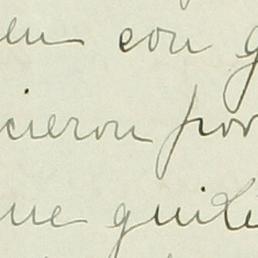 en con g
cieron por
ue quit